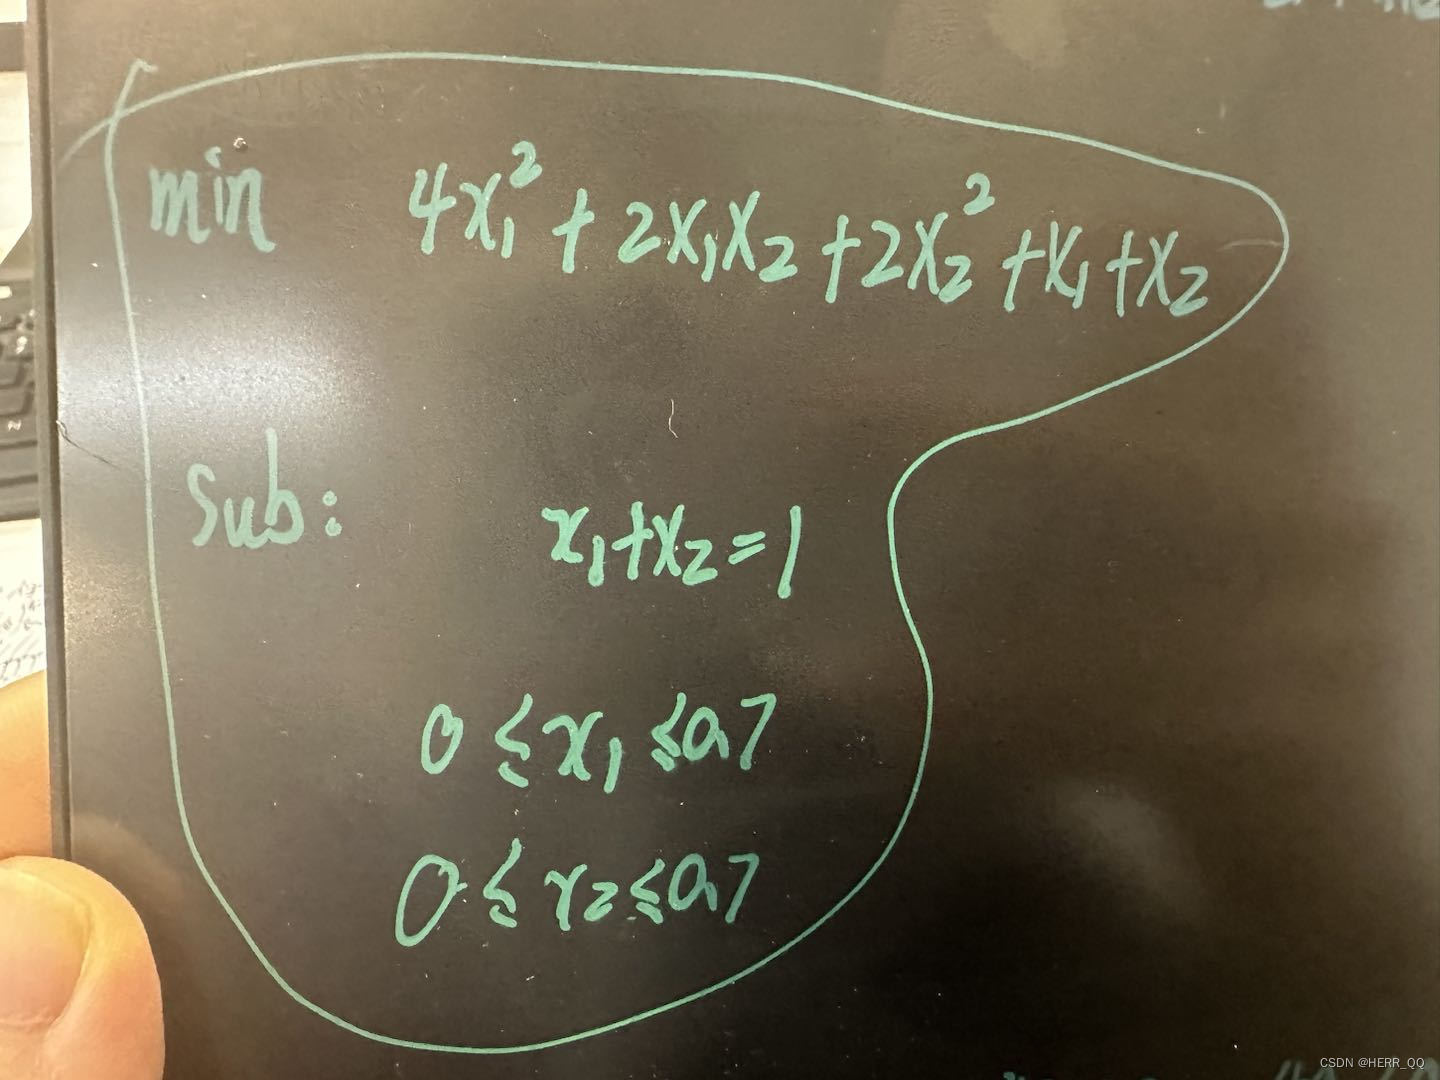 min 4x₁² + 2x₁x₂ + 2x₂² + x₁ + x₂
Sub: x₁+x₂=1
0 ≤ x₁ ≤ 0.7
0 ≤ x₂ ≤ 0.7
CSDN @HERR_QQ